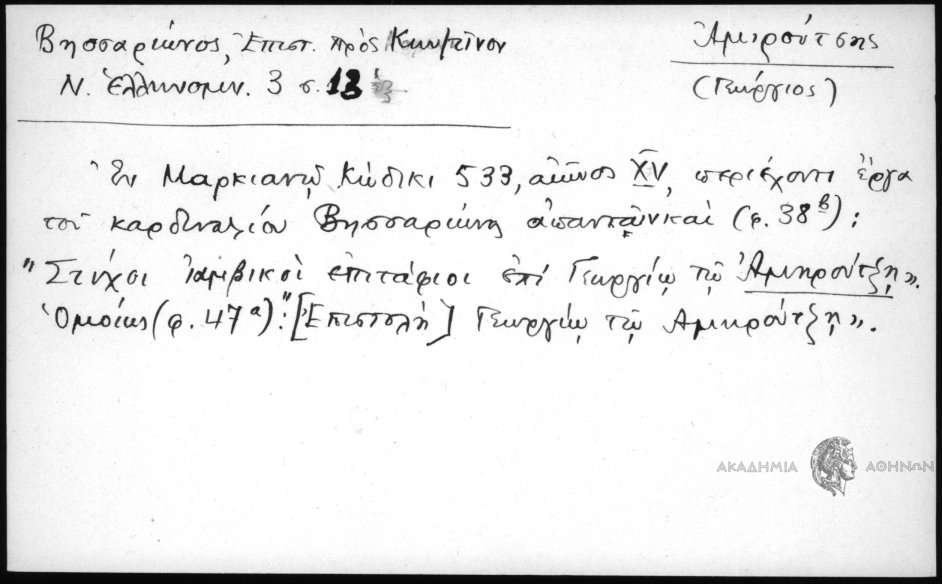 Βησσαρίωνος, Ἐπιστ. πρὸς
Ἀμιρούτσης
Ν. Ἑλληνομν. 3 σ. 13
(Γεώργιος)
Ἐν Μαρκιανῷ Κώδικι 533, αἰῶνος XV, περιέχοντι ἔργα
τοῦ καρδιναλίου Βησσαρίωνος ἀπαντῶνται (φ. 38β):
"Στίχοι ἰαμβικοὶ ἐπιτάφιοι ἐπὶ Γεωργίῳ τῷ Ἀμηρούτζῃ».
Ὁμοίως (φ. 47α): "[Ἐπιστολὴ] Γεωργίῳ τῷ Ἀμηρούτζῃ».
ΑΚΑΔΗΜΙΑ ΑΘΗΝΩΝ